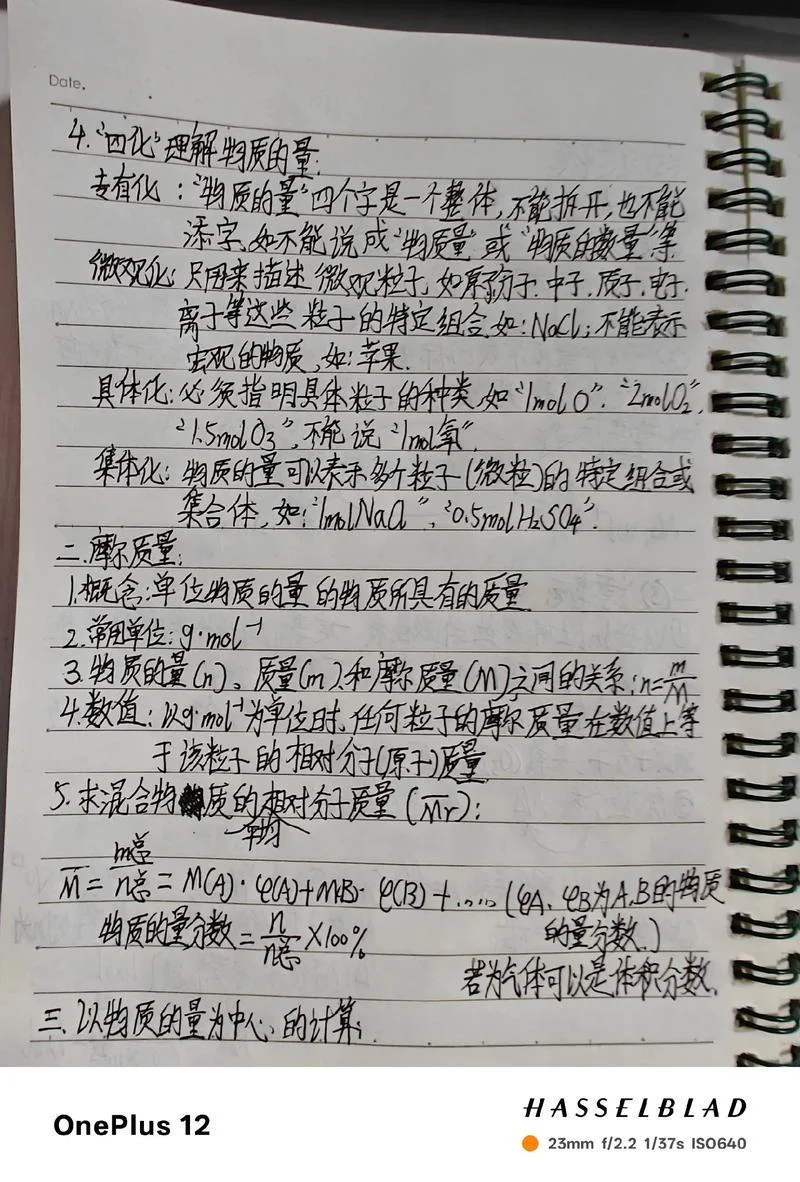 Date.
4."四化"理解物质的量:
专有化:"物质的量"四个字是一个整体,不能拆开,也不能
添字,如不能说成"物质量"或"物质的数量"等
微观化:只用来描述微观粒子,如原子、分子、中子、质子、电子、
离子等这些粒子的特定组合,如:NaCl;不能表示
宏观的物质,如:苹果.
具体化:必须指明具体粒子的种类,如"1molO"、"2molO₂",
"1.5molO₃",不能说"1mol氧".
集体化:物质的量可以表示多个粒子(微粒)的特定组合或
集合体,如:"1molNaCl"、"0.5molH₂SO₄".
二.摩尔质量:
1.概念:单位物质的量的物质所具有的质量.
2.常用单位:g·mol⁻¹
3.物质的量(n)、质量(m)和摩尔质量(M)之间的关系:n=m/M
4.数值:以g·mol⁻¹为单位时,任何粒子的摩尔质量在数值上等
于该粒子的相对分子(原子)质量
5.求混合物质的平均相对分子质量(M̅r):
M̅=m总/n总=M(A)·φ(A)+M(B)·φ(B)+……(φA、φB为A、B的物质
物质的量分数=n/n总×100% 的量分数.)
若为气体可以是体积分数.
三.以物质的量为中心的计算:
OnePlus 12
HASSELBLAD
23mm f/2.2 1/37s ISO640